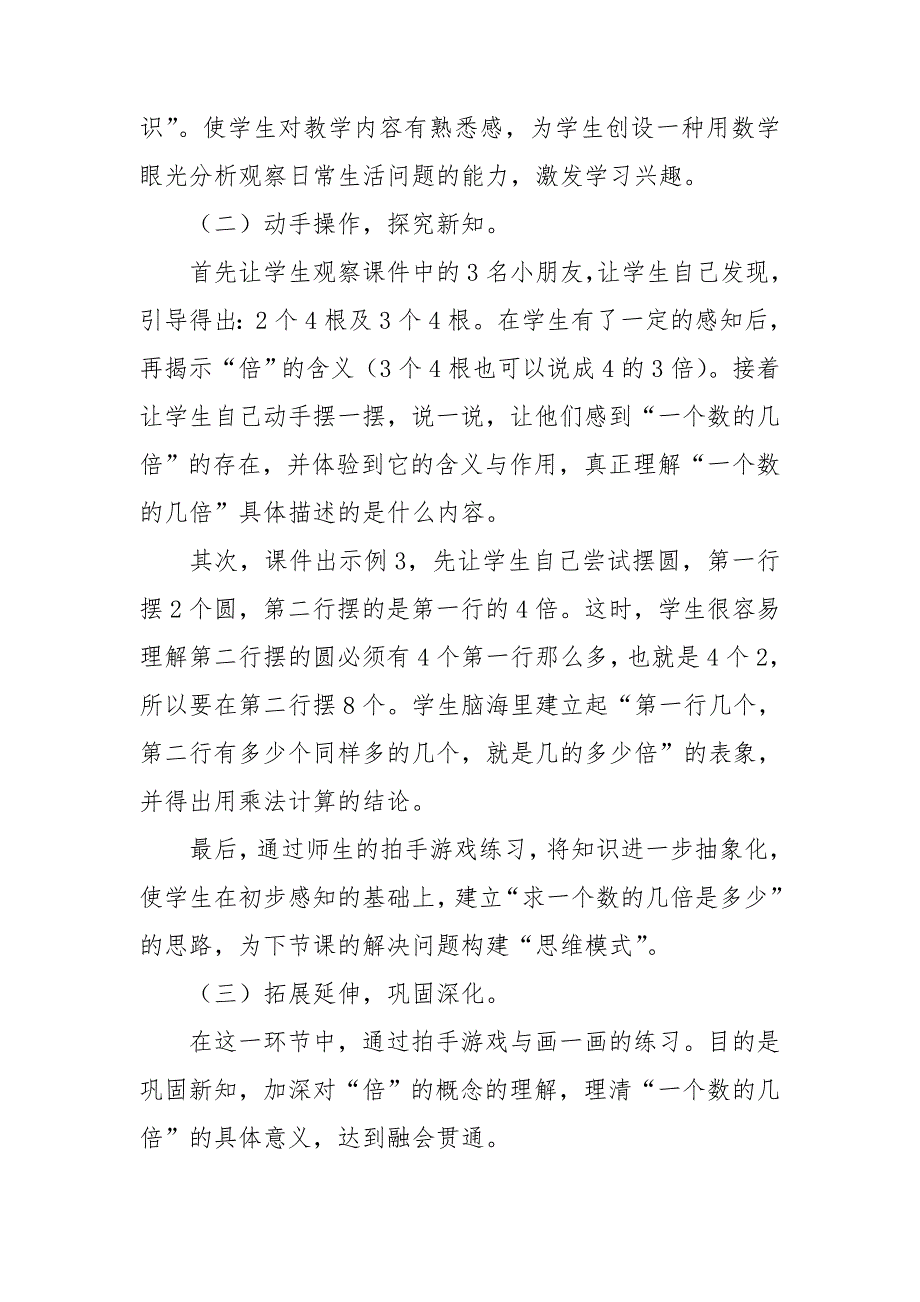 识”。使学生对教学内容有熟悉感，为学生创设一种用数学
眼光分析观察日常生活问题的能力，激发学习兴趣。
（二）动手操作，探究新知。
首先让学生观察课件中的3名小朋友，让学生自己发现，
引导得出：2个4根及3个4根。在学生有了一定的感知后，
再揭示“倍”的含义（3个4根也可以说成4的3倍）。接着
让学生自己动手摆一摆，说一说，让他们感到“一个数的几
倍”的存在，并体验到它的含义与作用，真正理解“一个数
的几倍”具体描述的是什么内容。
其次，课件出示例3，先让学生自己尝试摆圆，第一行
摆2个圆，第二行摆的是第一行的4倍。这时，学生很容易
理解第二行摆的圆必须有4个第一行那么多，也就是4个2，
所以要在第二行摆8个。学生脑海里建立起“第一行几个，
第二行有多少个同样多的几个，就是几的多少倍”的表象，
并得出用乘法计算的结论。
最后，通过师生的拍手游戏练习，将知识进一步抽象化，
使学生在初步感知的基础上，建立“求一个数的几倍是多少”
的思路，为下节课的解决问题构建“思维模式”。
（三）拓展延伸，巩固深化。
在这一环节中，通过拍手游戏与画一画的练习。目的是
巩固新知，加深对“倍”的概念的理解，理清“一个数的几
倍”的具体意义，达到融会贯通。